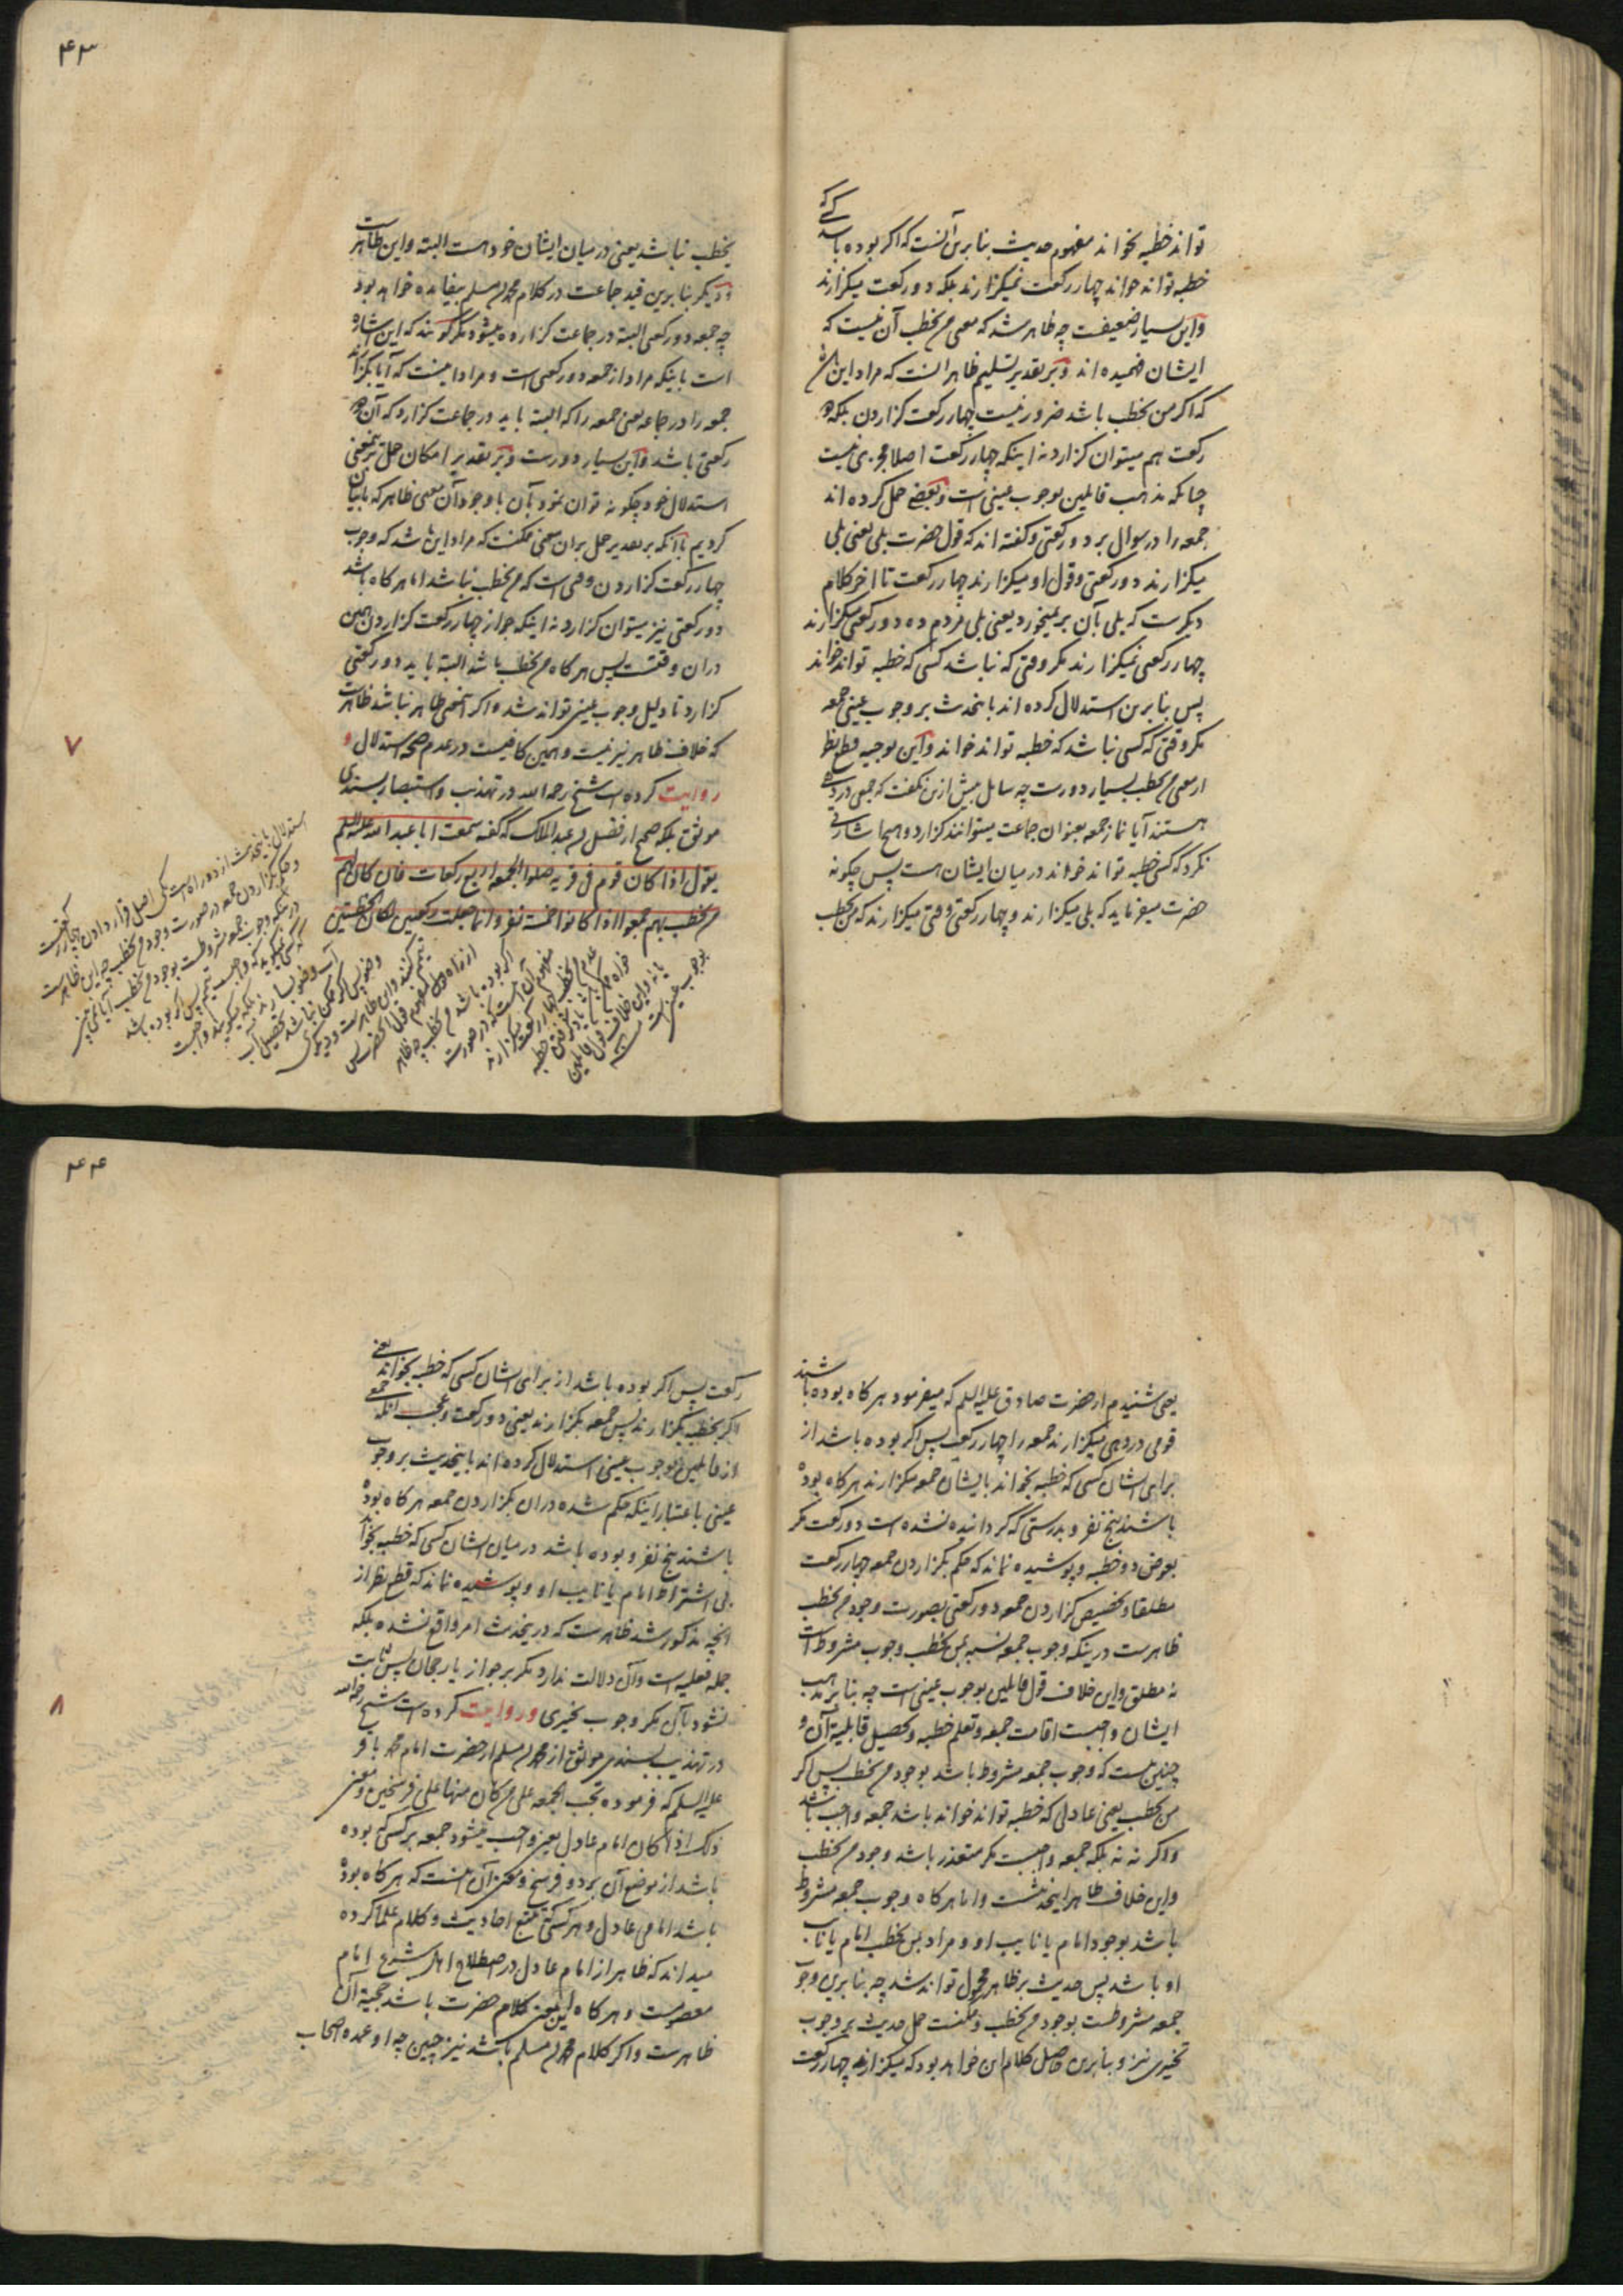 تواند خطبه بخواند مفهوم حدیث بنابرین آنست که اگر بوده باشد کسی که
خطبه تواند خواند چهار رکعت نمیگزارند بلکه دو رکعت میگزارند
و این بسیار ضعیفست چه ظاهر شد که معنی من یخطب آن نیست که
ایشان فهمیده اند و بر تقدیر تسلیم ظاهر آنست که مراد این باشد
که اگر من یخطب باشد ضرور نیست چهار رکعت گزاردن بلکه دو
رکعت هم میتوان گزارد نه اینکه چهار رکعت اصلا مجزی نیست
چنانکه مذهب قایلین بوجوب عینی است و بعضی حمل کرده اند
جمعه را در سوال بر دو رکعتی و گفته اند که قول حضرت بلی یعنی بلی
میگزارند دو رکعتی و قول او میگزارند چهار رکعت تا اخر کلام
دیگرست که بلی بآن برنمیخورد یعنی بلی مردم ده دو رکعتی میگزارند
چهار رکعتی نمیگزارند مگر وقتی که نباشد کسی که خطبه تواند خواند
پس بنابرین استدلال کرده اند باینحدیث بر وجوب عینی جمعه
مگر وقتی که کسی نباشد که خطبه تواند خواند و این توجیه قطع نظر
از معنی من یخطب بسیار دورست چه سایل بیش ازین نگفت که جمعی در دهی
هستند آیا نماز جمعه بعنوان جماعت میتوانند گزارد و هیچ اشارتی
نکرد که کسی خطبه تواند خواند در میان ایشان هست پس چگونه
حضرت میفرماید که بلی میگزارند و چهار رکعتی وقتی میگزارند که من یخطب
۴۳
یخطب نباشد یعنی در میان ایشان خود هست البته و این ظاهرست
و دیگر بنابرین قید جماعت در کلام محمد بن مسلم بیفایده خواهد بود
چه جمعه دو رکعتی البته در جماعت گزارده میشود مگر گویند که این اشاره
است باینکه مراد از جمعه دو رکعتی است و مراد اینست که آیا بگزارند
جمعه را در جماعه یعنی جمعه را که البته باید در جماعت گزارد که آن دو
رکعتی باشد و این بسیار دورست و بر تقدیر امکان حمل بر نمعنی
استدلال خود چگونه توان نمود بآن با وجود آن معنی ظاهر که ما بیان
کردیم با آنکه بر تقدیر حمل بران معنی ممکنست که مراد این باشد که وجوب
چهار رکعت گزاردن وقتی است که من یخطب نباشد اما هر گاه باشد
دو رکعتی نیز میتوان گزارد نه اینکه جواز چهار رکعت گزاردن همین
دران وقتست پس هر گاه من یخطب باشد البته باید دو رکعتی
گزارد تا دلیل وجوب عینی تواند شد و اگر اینمعنی ظاهر نباشد ظاهرست
که خلاف ظاهر نیز نیست و همین کافیست در عدم صحه استدلال و
روایت کرده است شیخ رحمه الله در تهذیب و استبصار بسندی
موثق بلکه صحیح از فضل بن عبدالملک که گفته سمعت ابا عبدالله علیه السلم
یقول اذا کان قوم فی قریه صلوا الجمعه اربع رکعات فان کان لهم
من یخطب بهم جمعوا اذا کانوا خمسة نفر و انما جعلت رکعتین لمکان الخطبتین
۷
۴۴
یعنی شنیدم از حضرت صادق علیه السلم که میفرمود هر گاه بوده باشند
قومی در دهی میگزارند جمعه را چهار رکعت پس اگر بوده باشد از
برای ایشان کسی که خطبه بخواند بایشان جمعه میگزارند هر گاه بوده
باشند پنج نفر و بدرستی که گردانیده نشده است دو رکعت مگر
بعوض دو خطبه و پوشیده نماند که حکم بگزاردن جمعه چهار رکعت
مطلقا و تخصیص گزاردن جمعه دو رکعتی بصورت وجود من یخطب
ظاهرست درینکه وجوب جمعه نسبه بمن یخطب وجوب مشروط است
نه مطلق و این خلاف قول قایلین بوجوب عینی است چه بنابر مذهب
ایشان واجبست اقامت جمعه و تعلم خطبه و تحصیل قابلیة آن و
چنین نیست که وجوب جمعه مشروط باشد بوجود من یخطب پس اگر
من یخطب یعنی عادلی که خطبه تواند خواند باشد جمعه واجب باشد
و اگر نه نه بلکه جمعه واجبست مگر متعذر باشد وجود من یخطب
و این خلاف ظاهر اینحدیثست و اما هر گاه وجوب جمعه مشروط
باشد بوجود امام یا نایب او و مراد بمن یخطب امام یا نایب
او باشد پس حدیث بر ظاهر محمول تواند شد چه بنابرین وجوب
جمعه مشروطست بوجود من یخطب و ممکنست حمل حدیث بر وجوب
تخییری نیز و بنابرین حاصل کلام این خواهد بود که میگزارند چهار رکعت
رکعت پس اگر بوده باشد از برای ایشان کسی که خطبه بخواند یعنی
اگر یخطب بگزارند پس جمعه بگزارند یعنی دو رکعت و عجب آنکه جمعی
از قایلین بوجوب عینی استدلال کرده اند باینحدیث بر وجوب
عینی باعتبار اینکه حکم شده دران بگزاردن جمعه هر گاه بوده
باشند پنج نفر و بوده باشد در میان ایشان کسی که خطبه بخواند
بی اشتراط امام یا نایب او و پوشیده نماند که قطع نظر از
آنچه مذکور شد ظاهرست که درینحدیث امر واقع نشده بلکه
جمله فعلیه است و آن دلالت ندارد مگر بر جواز یا رجحان پس ثابت
نشود بآن مگر وجوب تخییری و روایت کرده است شیخ رحمه الله
در تهذیب بسندی موثق از محمد بن مسلم از حضرت امام محمد باقر
علیه السلم که فرموده تجب الجمعه علی من کان منها علی فرسخین و معنی
ذلک اذا کان امام عادل یعنی واجب میشود جمعه بر کسی که بوده
باشد از موضع آن بر دو فرسخ و معنی آن اینست که هر گاه بوده
باشد امامی عادل و هر کسی که تتبع احادیث و کلام علما کرده
میداند که ظاهر از امام عادل در اصطلاح اهل شرع امام
معصومست و هر گاه این معنی کلام حضرت باشد حجیة آن
ظاهرست و اگر کلام محمد بن مسلم باشد نیز چنین چه او عمده اصحاب
۸